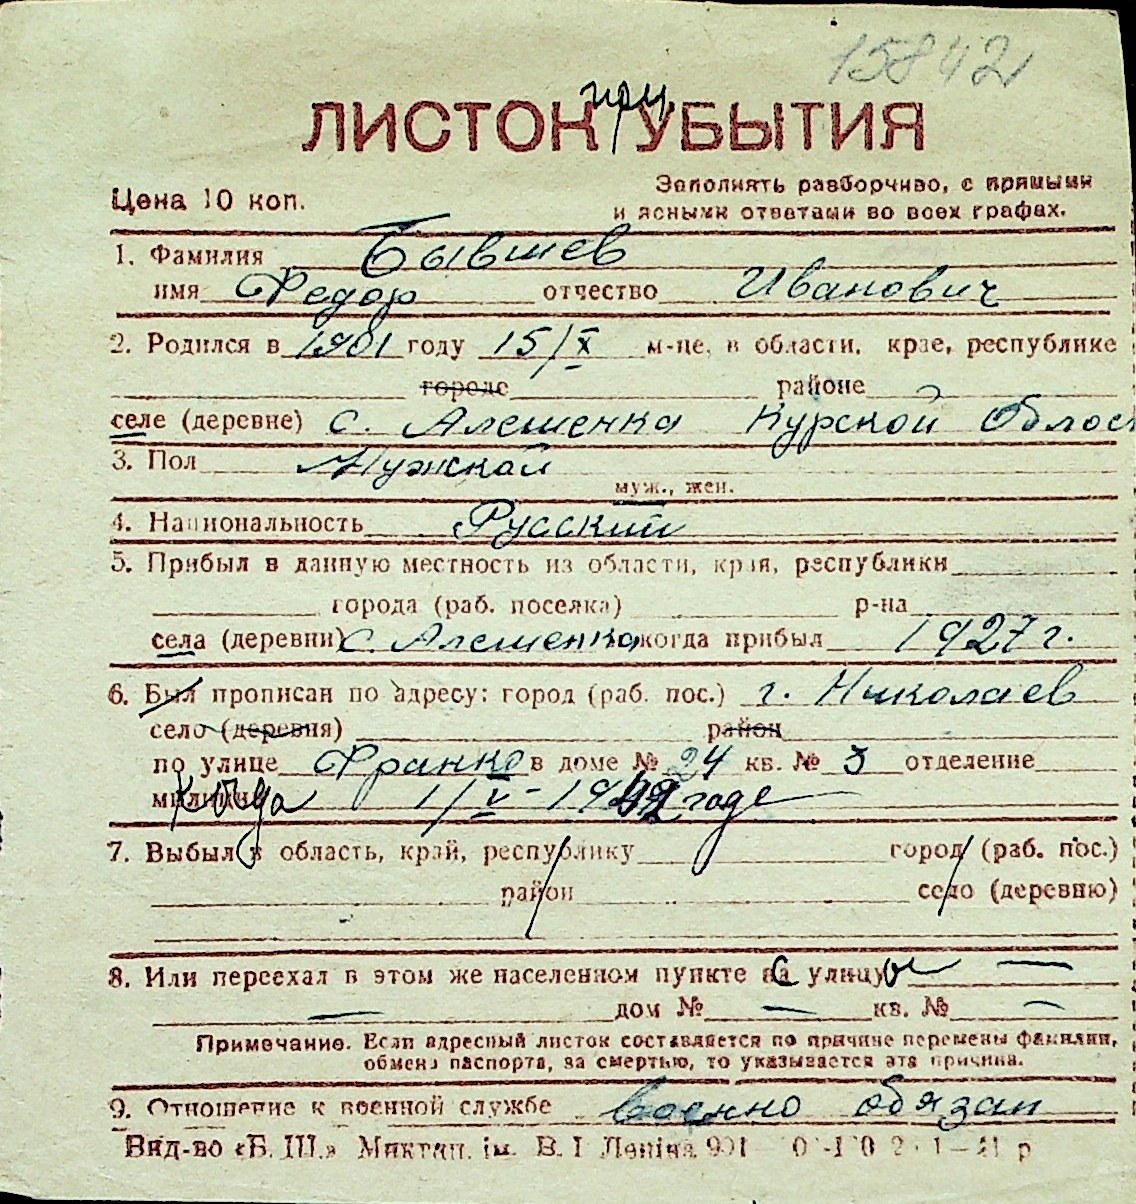 15842
при
ЛИСТОК УБЫТИЯ
Цена 10 коп.
Заполнять разборчиво, с прямыми
и ясными ответами во всех графах.
1. Фамилия Бывшев
имя Федор отчество Иванович
2. Родился в 1901 году 15/X м-це, в области, крае, республике
городе районе
селе (деревне) с. Алешенка Курской Облас
3. Пол Мужской
муж., жен.
4. Национальность Русский
5. Прибыл в данную местность из области, края, республики
города (раб. поселка) р-на
села (деревни) с. Алешенка когда прибыл 1927 г.
6. Был прописан по адресу: город (раб. пос.) г. Николаев
село (деревня) район
по улице Франко в доме № 24 кв. № 3 отделение
милиции Когда 1/V - 1942 годе
7. Выбыл в область, край, республику город (раб. пос.)
район село (деревню)
8. Или переехал в этом же населенном пункте с улицы —
— дом № — кв. № —
Примечание. Если адресный листок составляется по причине перемены фамилии,
обмена паспорта, за смертью, то указывается эта причина.
9. Отношение к военной службе военно обязан
Вид-во «Б. Ш.» Микган. ім. В. І Леніна